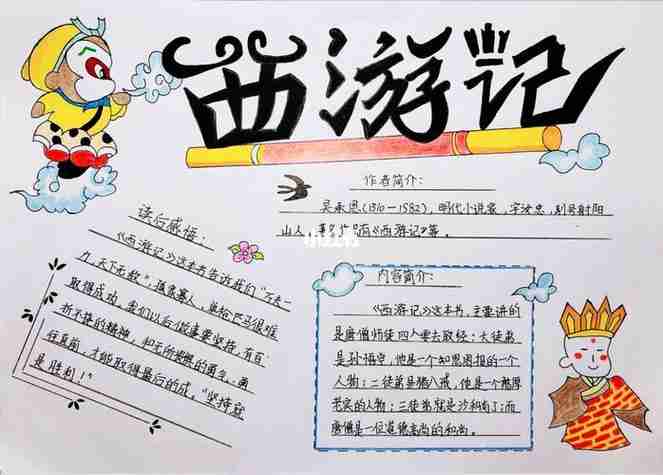 西游记
作者简介:
吴承恩(1510—1582),明代小说家,字汝忠,别号射阳
山人,著名 有《西游记》等。
小红书
读后感悟:
《西游记》这本书告诉我们"万夫一
力,天下无敌",孤家寡人、单枪匹马很难
取得成功。我们以后做事要坚持,有百
折不挠的精神,和无所畏惧的勇气,勇
往直前,才能取得最后的成,"坚持
是胜利!"
内容简介:
《西游记》这本书,主要讲的
是唐僧师徒四人要去取经:大徒弟
是孙悟空,他是一个知恩图报的一个
人物;二徒弟是猪八戒,他是一个憨厚
老实的人物;三徒弟就是沙和尚了;而
唐僧是一位道德高尚的和尚。